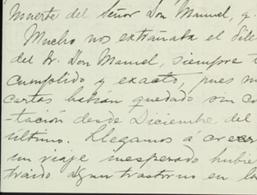 muerte del señor Don Manuel, y
Mucho nos extrañaba el sile
del Sr. Don Manuel, siempre
cumplido y exacto, pues m
cartas habian quedado sin co
tación desde Diciembre del
último. Llegamos á creer
un viaje inesperado hubie
traido algun trastorno en la